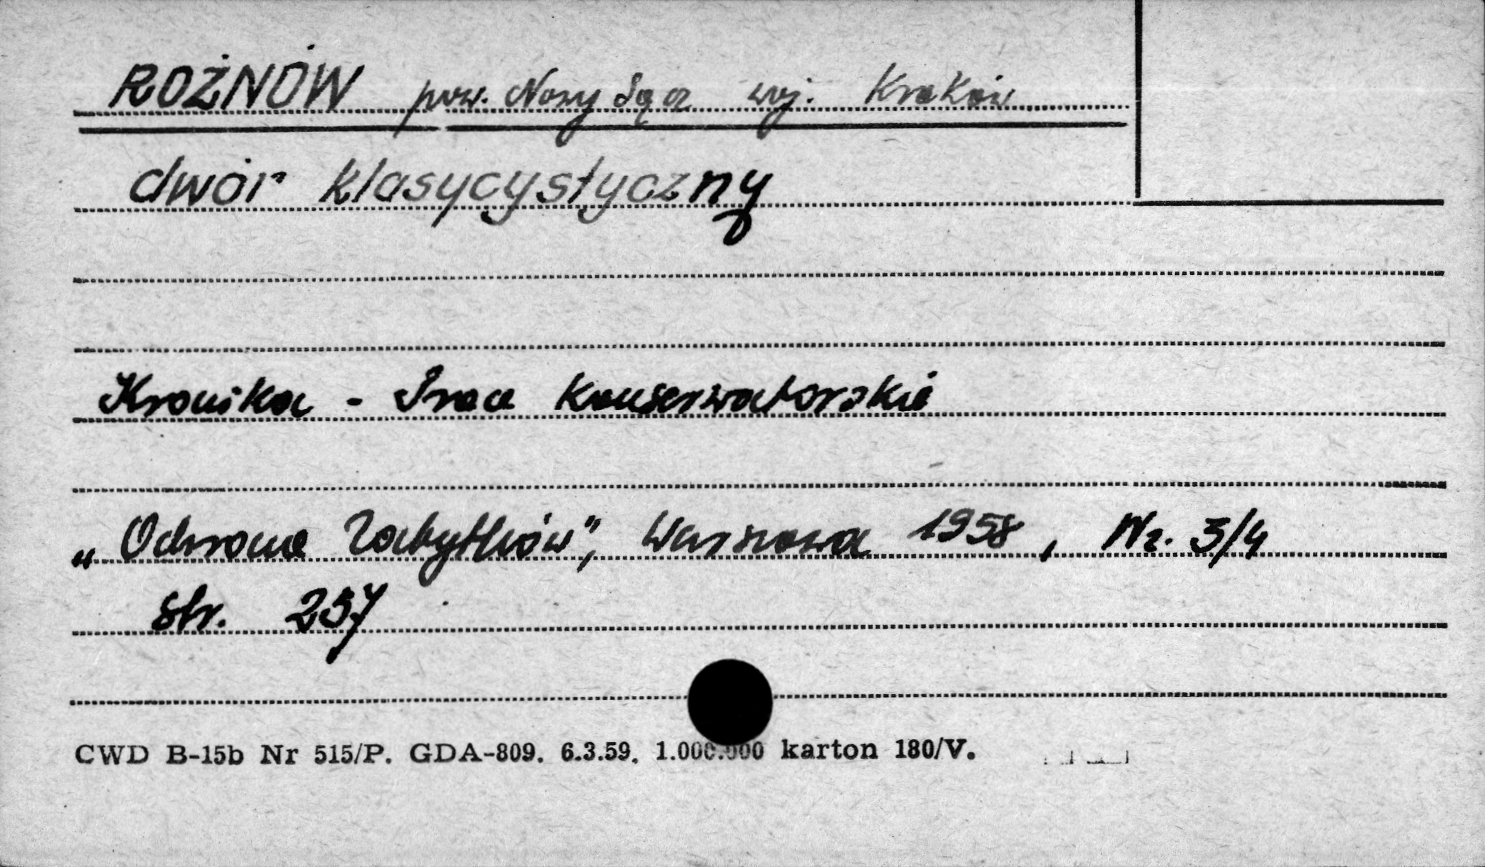 ROŻNÓW pow. Nowy Sącz woj. Kraków
dwór klasycystyczny
Kronika - Prace konserwatorskie
„Ochrona Zabytków", Warszawa 1958, Nr. 3/4
str. 257
CWD B-15b Nr 515/P. GDA-809. 6.3.59. 1.000.000 karton 180/V.